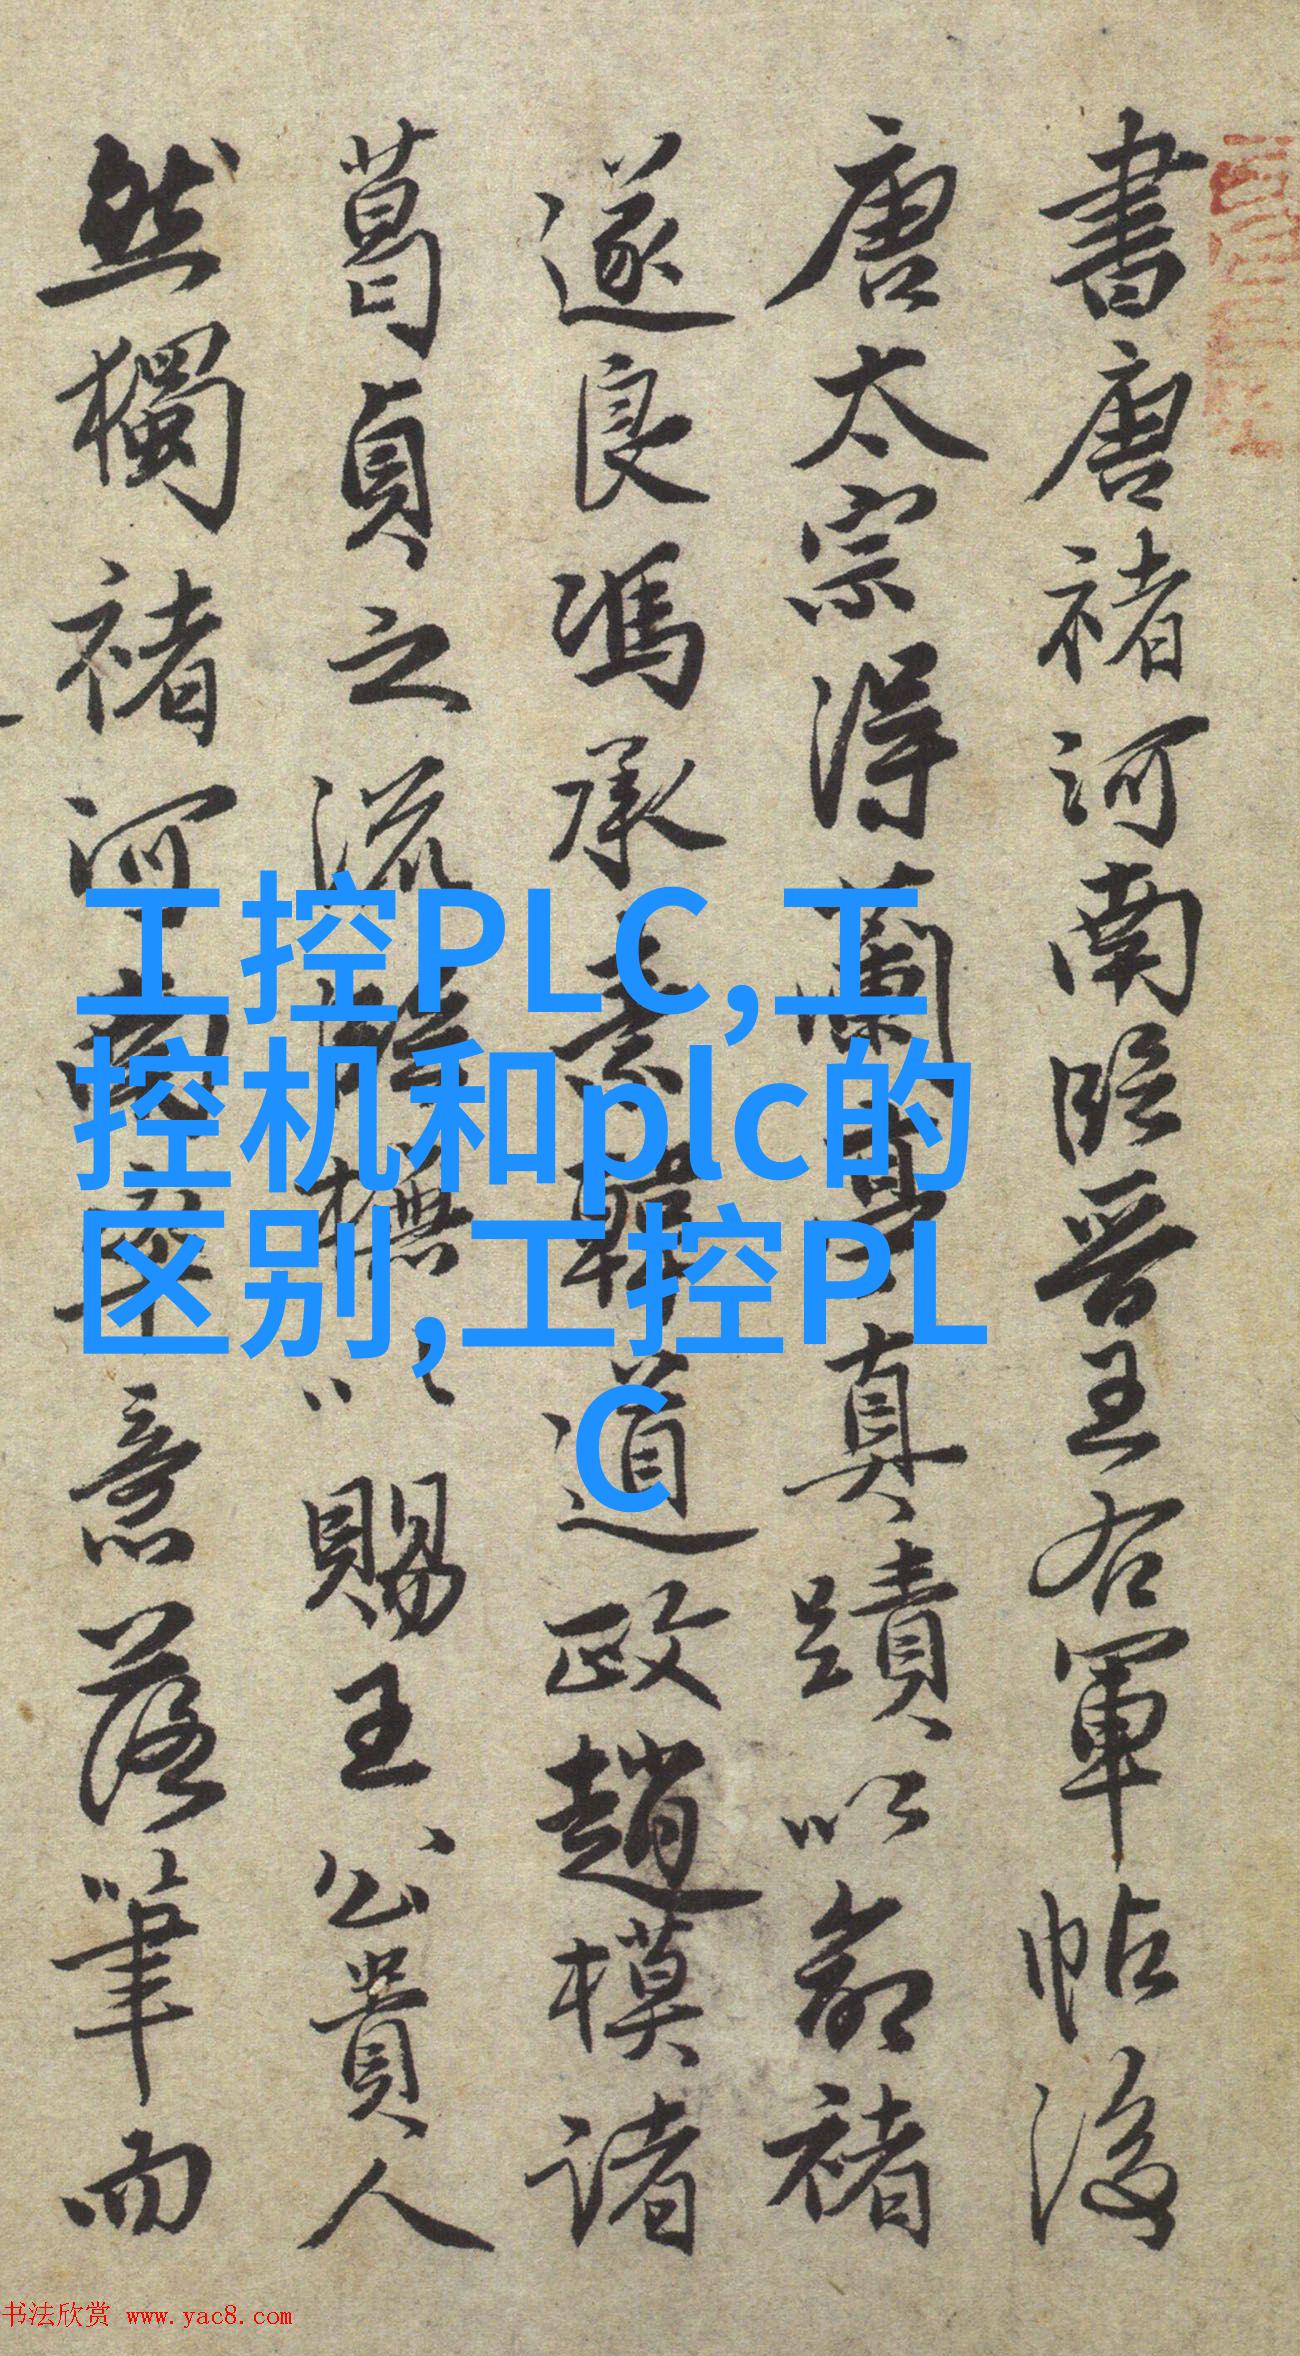 書唐褚河南臨晉王右軍帖後
唐太宗得蘭亭真蹟以命褚
遂良馮承素韓道政趙模諸
葛貞之流臨橅以賜王公貴人
然獨褚河南率意落筆而
工控PLC,工
控机和plc的
区别,工控PL
C
书法欣赏 www.yac8.com